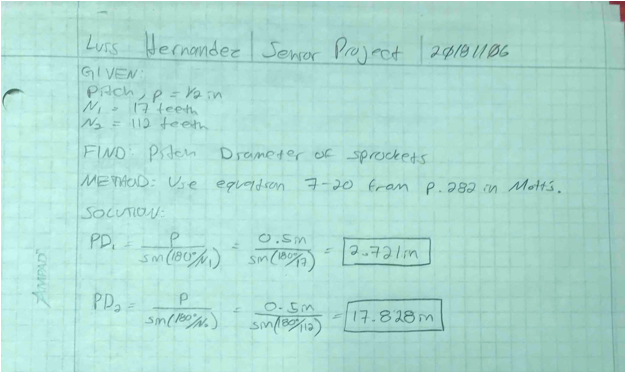 Luis Hernandez | Senior Project | 20181106
GIVEN:
Pitch, p = 1/2 in
N1 = 17 teeth
N2 = 112 teeth
FIND: Pitch Diameter of sprockets
METHOD: Use equation 7-20 from p.282 in Mott's.
SOLUTION:
PD1 = p / sin(180°/N1) = 0.5in / sin(180°/17) = 2.721in
PD2 = p / sin(180°/N2) = 0.5in / sin(180°/112) = 17.828in
AMPAD